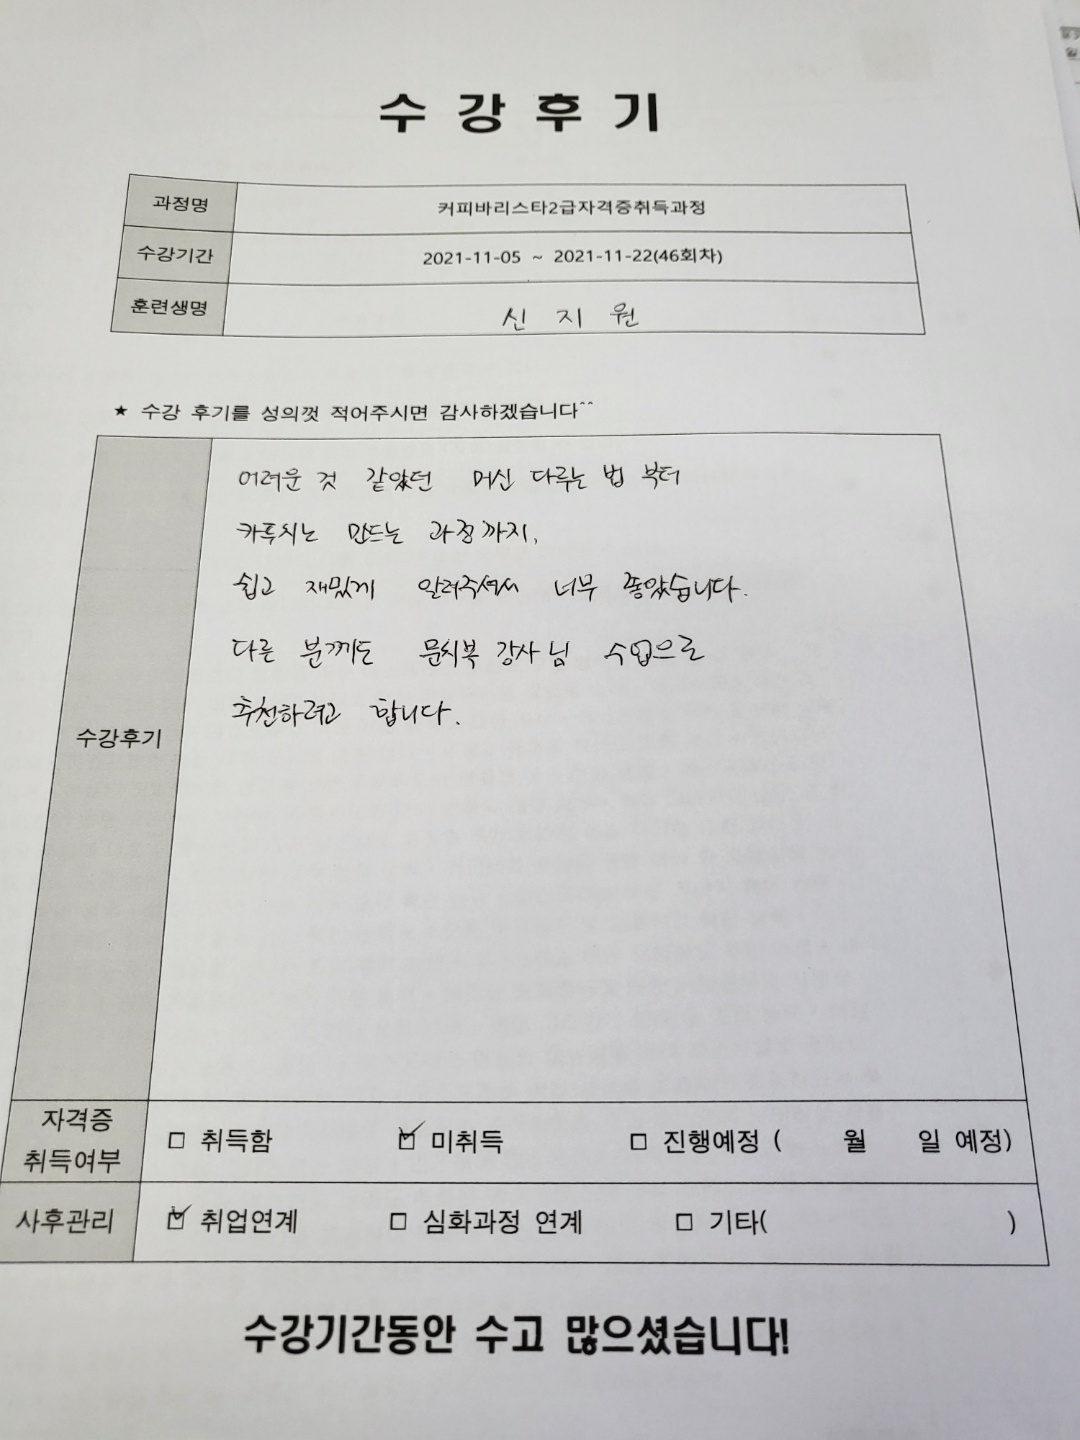 수강후기
과정명 커피바리스타2급자격증취득과정
수강기간 2021-11-05 ~ 2021-11-22(46회차)
훈련생명 신 지 원
★ 수강 후기를 성의껏 적어주시면 감사하겠습니다^^
수강후기
어려운 것 같았던 머신 다루는 법 부터
카푸치노 만드는 과정까지,
쉽고 재밌게 알려주셔서 너무 좋았습니다.
다른 분께도 문치복 강사님 수업으로
추천하려고 합니다.
자격증 취득여부 □ 취득함 ☑ 미취득 □ 진행예정 ( 월 일 예정)
사후관리 ☑ 취업연계 □ 심화과정 연계 □ 기타( )
수강기간동안 수고 많으셨습니다!